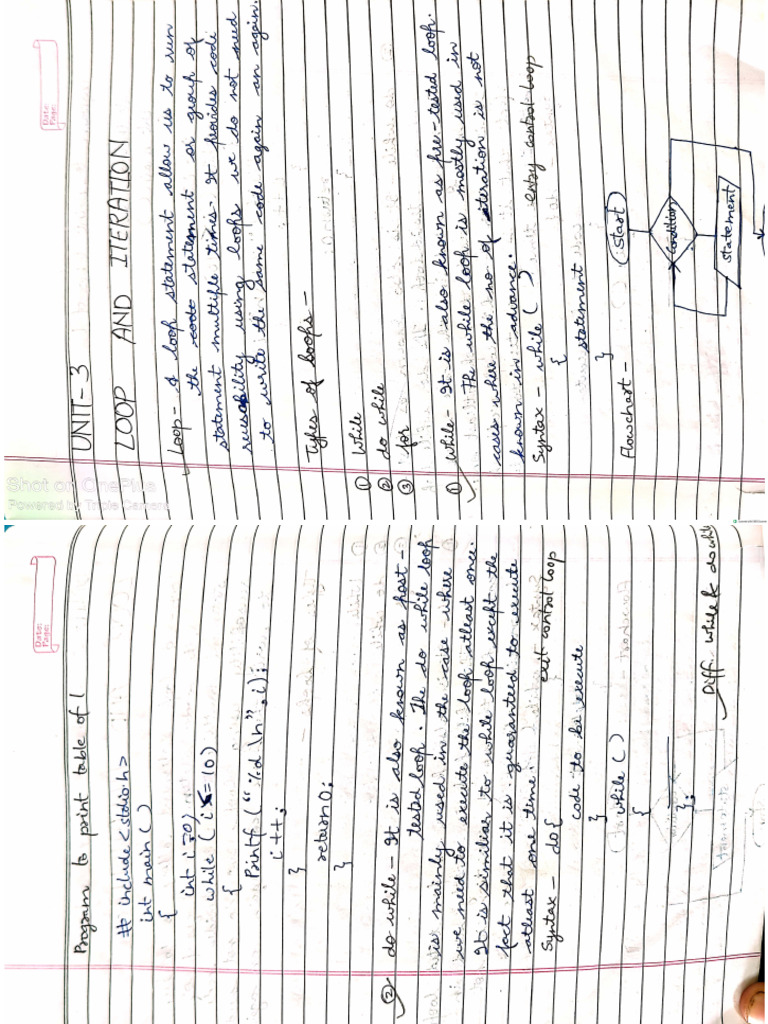 Date:
Page:
UNIT-3
LOOP AND ITERATION
Loop- A loop statement allow us to run
the code statement or group of
statement multiple times. It provides code
reusability using loops we do not need
to write the same code again an again.
Types of Loops -
① While
② do while
③ for
① While- It is also known as pre-tested loop.
The while loop is mostly used in
cases where the no of iteration is not
known in advance.
Syntax - while ( ) entry control loop
{
statement
}
Flowchart -
Start
condition
statement
Shot on OnePlus
Powered by Triple Camera
Date:
Page:
Program to print table of 1
# include <stdio.h>
int main ( )
{
int i=0)
while ( i<=10)
{
Printf ( " %d \n" , i);
i++;
}
return 0;
}
② do while - It is also known as post -
tested loop. The do while loop
is mainly used in the case where
we need to execute the loop atleast once.
It is similiar to while loop except the
fact that it is guaranteed to execute
atleast one time.
Syntax - do { exit control loop
code to be execute
}
while ( )
{
};
Diff. while & do while